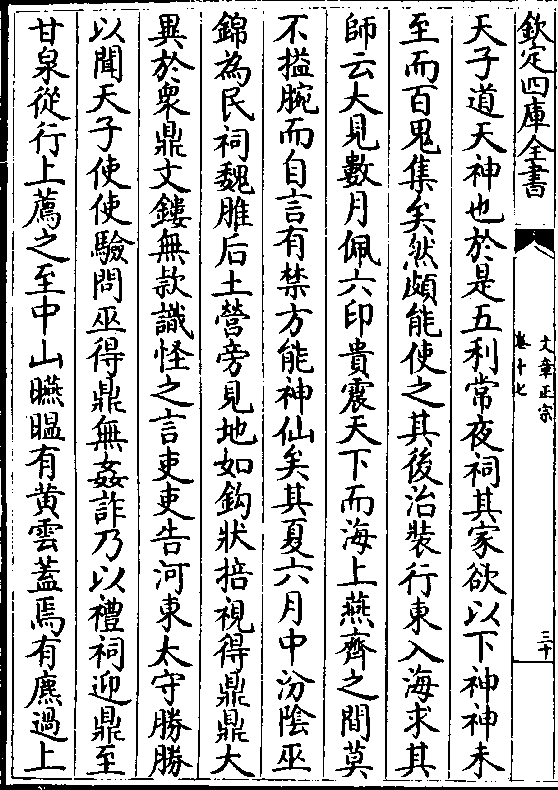 欽定四庫全書
文章正宗
卷十七
三十
天子道天神也於是五利常夜祠其家欲以下神神未
至而百鬼集矣然頗能使之其後治裝行東入海求其
師云大見數月佩六印貴震天下而海上燕齊之間莫
不搤腕而自言有禁方能神仙矣其夏六月中汾陰巫
錦為民祠魏脽后土營旁見地如鈎狀掊視得鼎鼎大
異於衆鼎文鏤無款識怪之言吏吏告河東太守勝勝
以聞天子使使驗問巫得鼎無姦詐乃以禮祠迎鼎至
甘泉從行上薦之至中山㬫㬈有黄雲蓋焉有麃過上